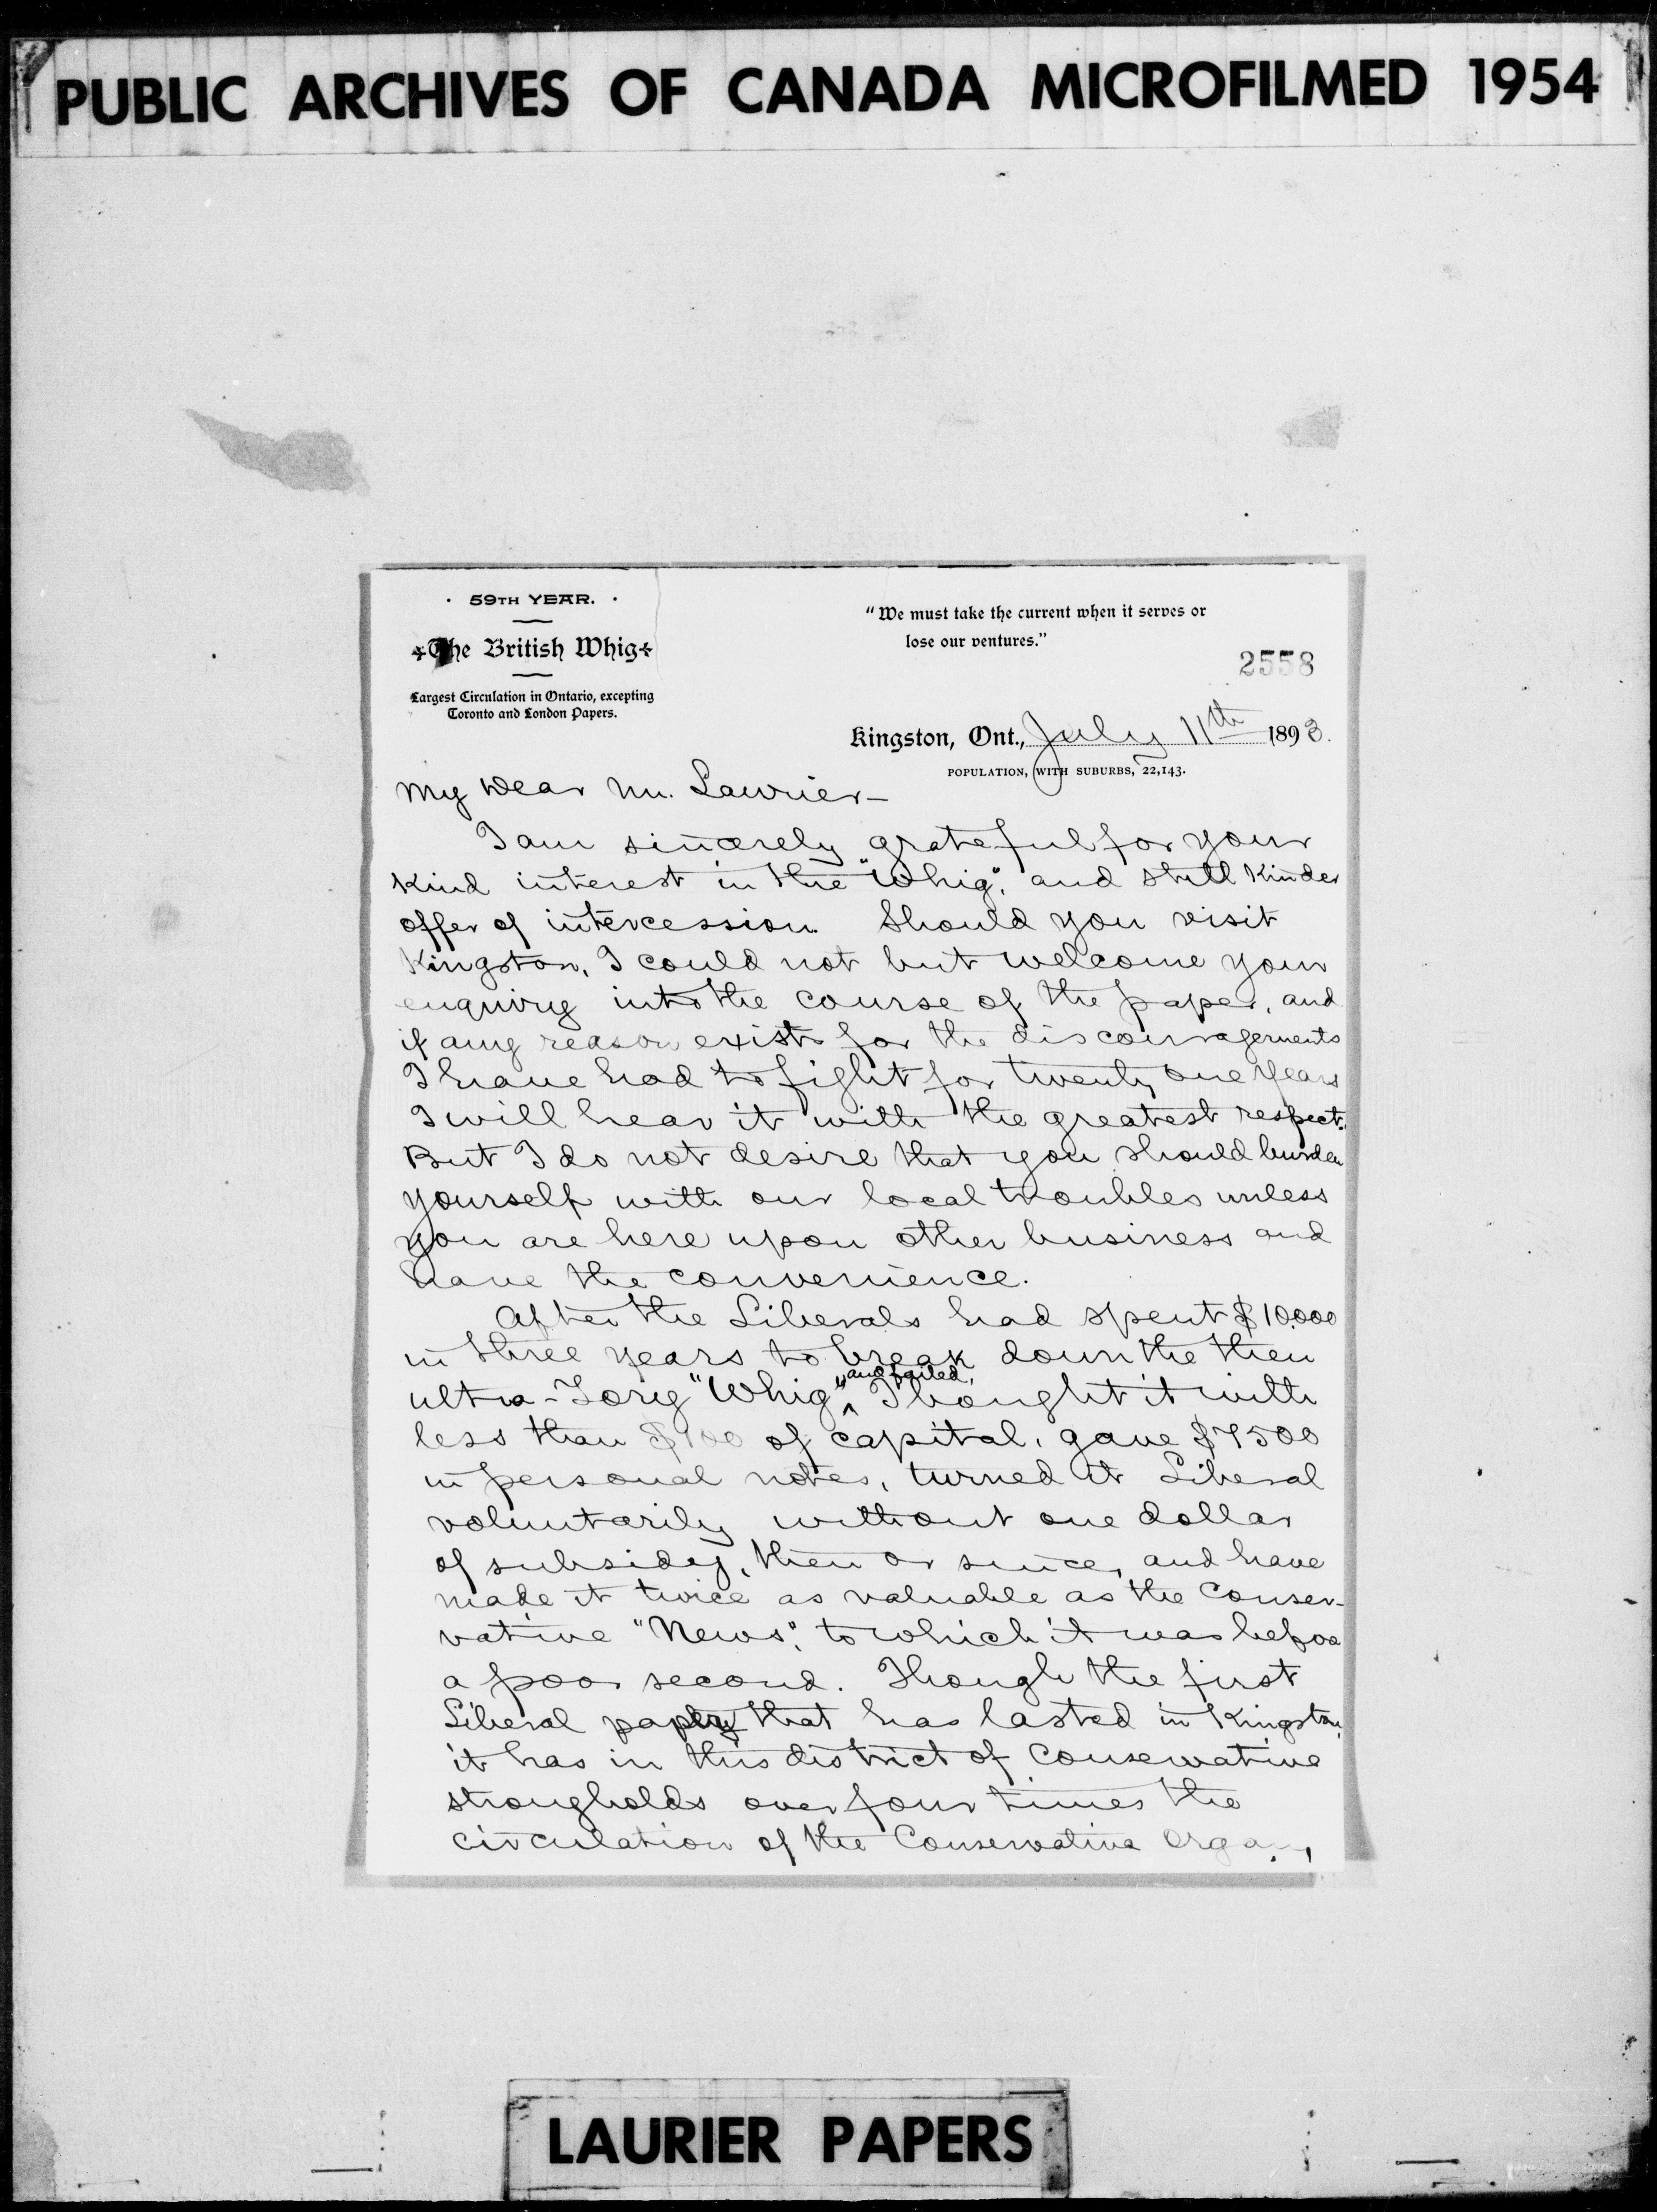 PUBLIC ARCHIVES OF CANADA MICROFILMED 1954
59TH YEAR.
The British Whig
Largest Circulation in Ontario, excepting
Toronto and London Papers.
"We must take the current when it serves or
lose our ventures."
2558
Kingston, Ont., July 11th 1893.
POPULATION, WITH SUBURBS, 22,143.
My Dear Mr. Laurier—
I am sincerely grateful for your
kind interest in the "Whig", and still kinder
offer of intercession. Should you visit
Kingston, I could not but welcome your
enquiry into the course of the paper, and
if any reason exists for the discouragements
I have had to fight for twenty one years
I will hear it with the greatest respect.
But I do not desire that you should burden
yourself with our local troubles unless
you are here upon other business and
have the convenience.
After the Liberals had spent $10.000
in three years to break down the then
ultra-Tory "Whig", and failed, I bought it with
less than $100 of capital, gave $7500
in personal notes, turned it Liberal
voluntarily without one dollar
of subsidy, then or since, and have
made it twice as valuable as the Conser-
vative "News", to which it was before
a poor second. Though the first
Liberal paper that has lasted in Kingston,
it has in this district of Conservative
strongholds over four times the
circulation of the Conservative organ,
LAURIER PAPERS